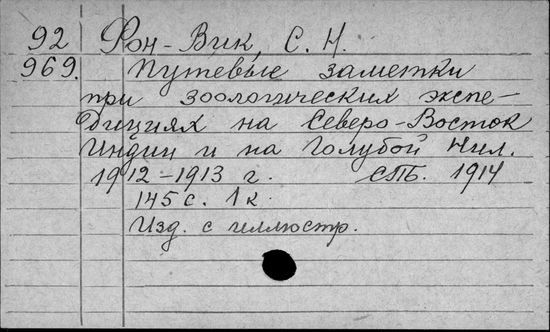 92 Фон-Вик, С. Н.
969. Путевые заметки
при зоологических экспе-
дициях на Северо-Восток
Индии и на Голубой Нил.
1912-1913 г. СПБ. 1914
145 с. 1 к.
Изд. с иллюстр.